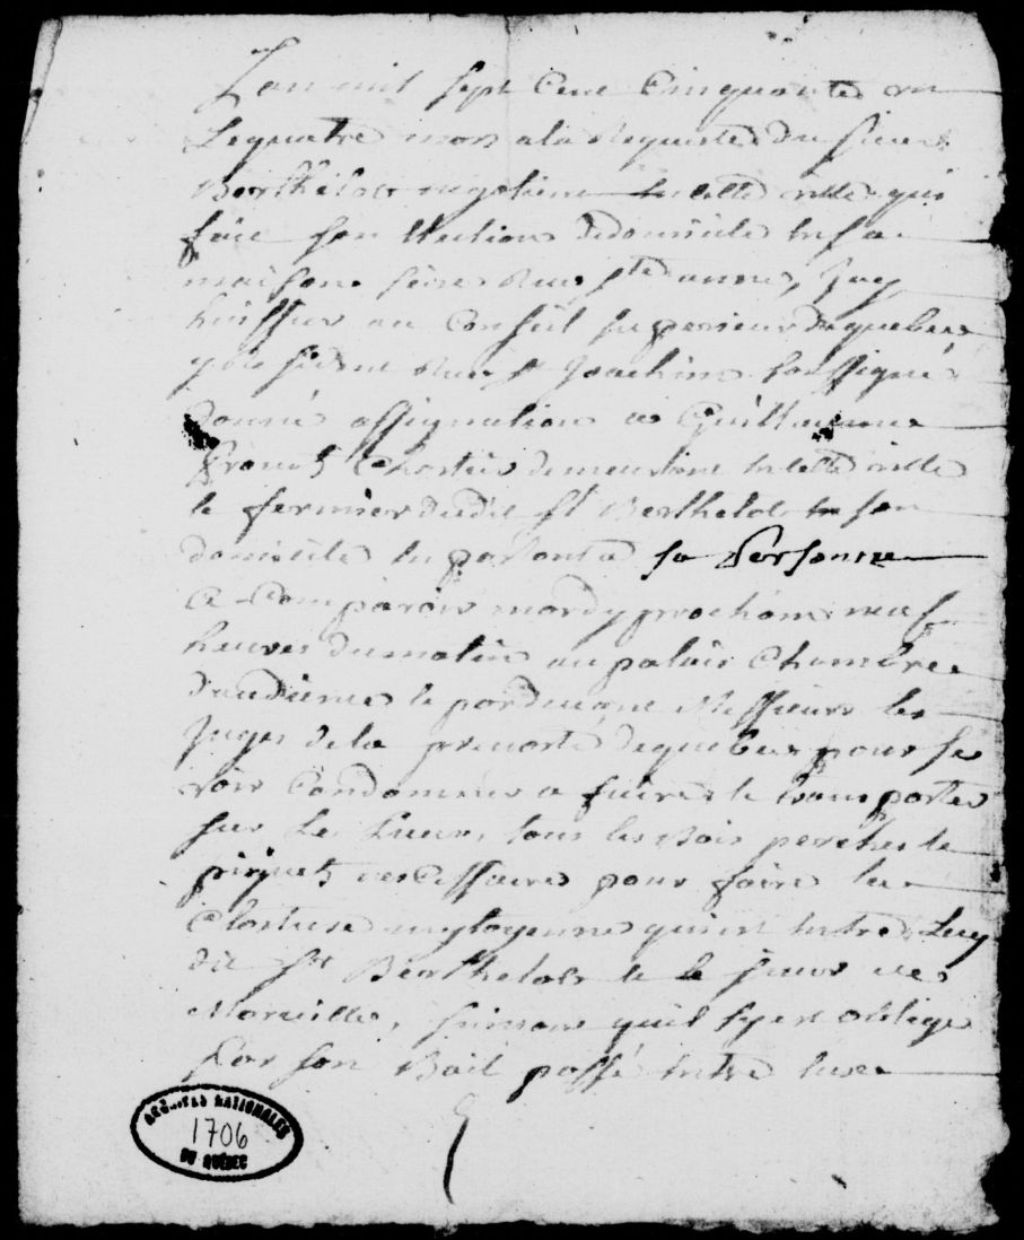 Lan mil sept Cent Cinquante un
Lequatre mars ala Requeste du sieur
Berthelot negotiant en cette ville qui
faic son Election dedomicile en sa
maison seize Rue Ste anne, Jay
huissier au Conseil superieur dequebec
y residant Rue St Joachim soussigné
donné assignation a Guillaume
franc̃ Chartier demeurant en cette ville
le fermier dudit Sr Berthelot en son
domicile en parlant a sa Personne
A Comparoir mardy prochain neuf
heures dumatin au palais Chambre
daudience le pardevant Messieurs les
Juges dela prevosté dequebec pour se
voir Condamner a faire le transporter
sur Le Lieux, tous les Bois perches le
piquets necessaire pour faire la
Closture mytoyenne quiest entre Luy
dit Sr Berthelot le le sieur de
Moreville, suivant quil syest obligé
Par son Bail passé entre eux
ARCHIVES NATIONALES
1706
DU QUÉBEC